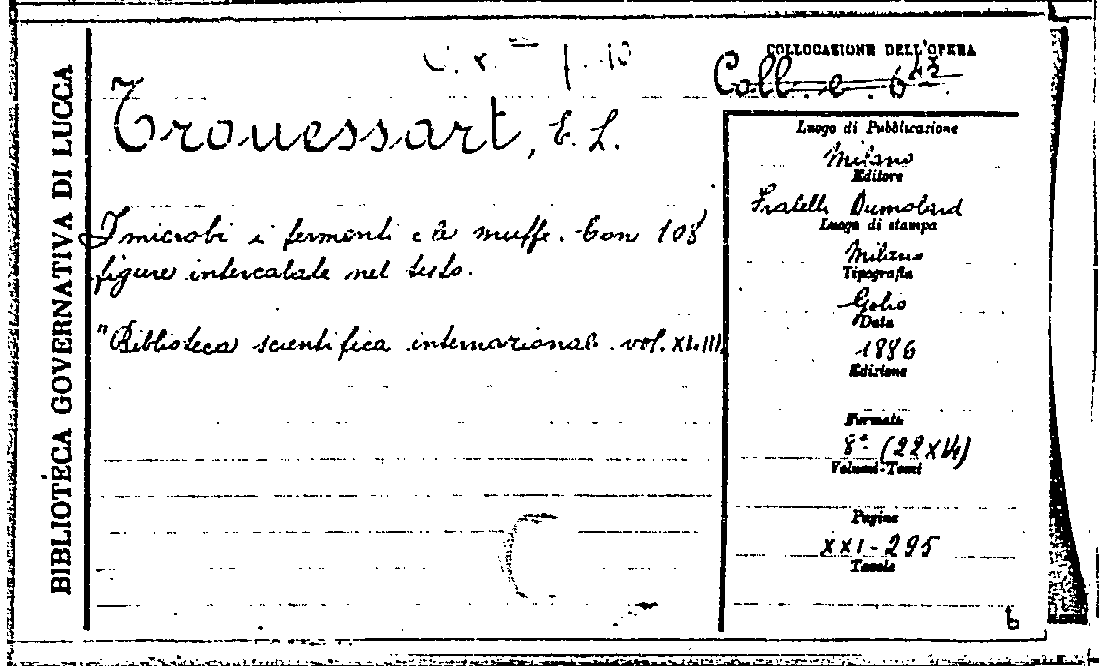 BIBLIOTECA GOVERNATIVA DI LUCCA
COLLOCAZIONE DELL'OPERA
Coll. e. 6
Trouessart, E. L.
I microbi i fermenti e le muffe. Con 108
figure intercalate nel testo.
"Biblioteca scientifica internazionale. vol. XLIII
Luogo di Pubblicazione
Milano
Editore
Fratelli Dumolard
Luogo di stampa
Milano
Tipografia
Golio
Data
1886
Edizione
Formato
8º (22x14)
Volumi-Tomi
Pagine
XXI-295
Tavole